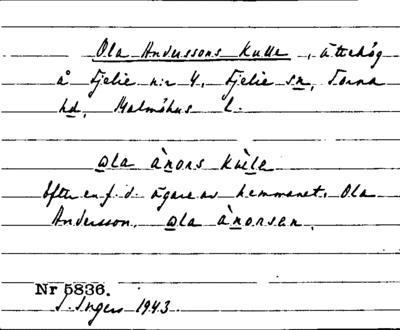 Ola Anderssons kulle, ättehög
å Fjelie n:r 4, Fjelie sn, Torna
hd, Malmöhus l.
ola ànons kùlle
Efter en f.d. ägare av hemmanet, Ola
Andersson. ola ànorsen.
Nr 5836.
I. Ingers 1943.